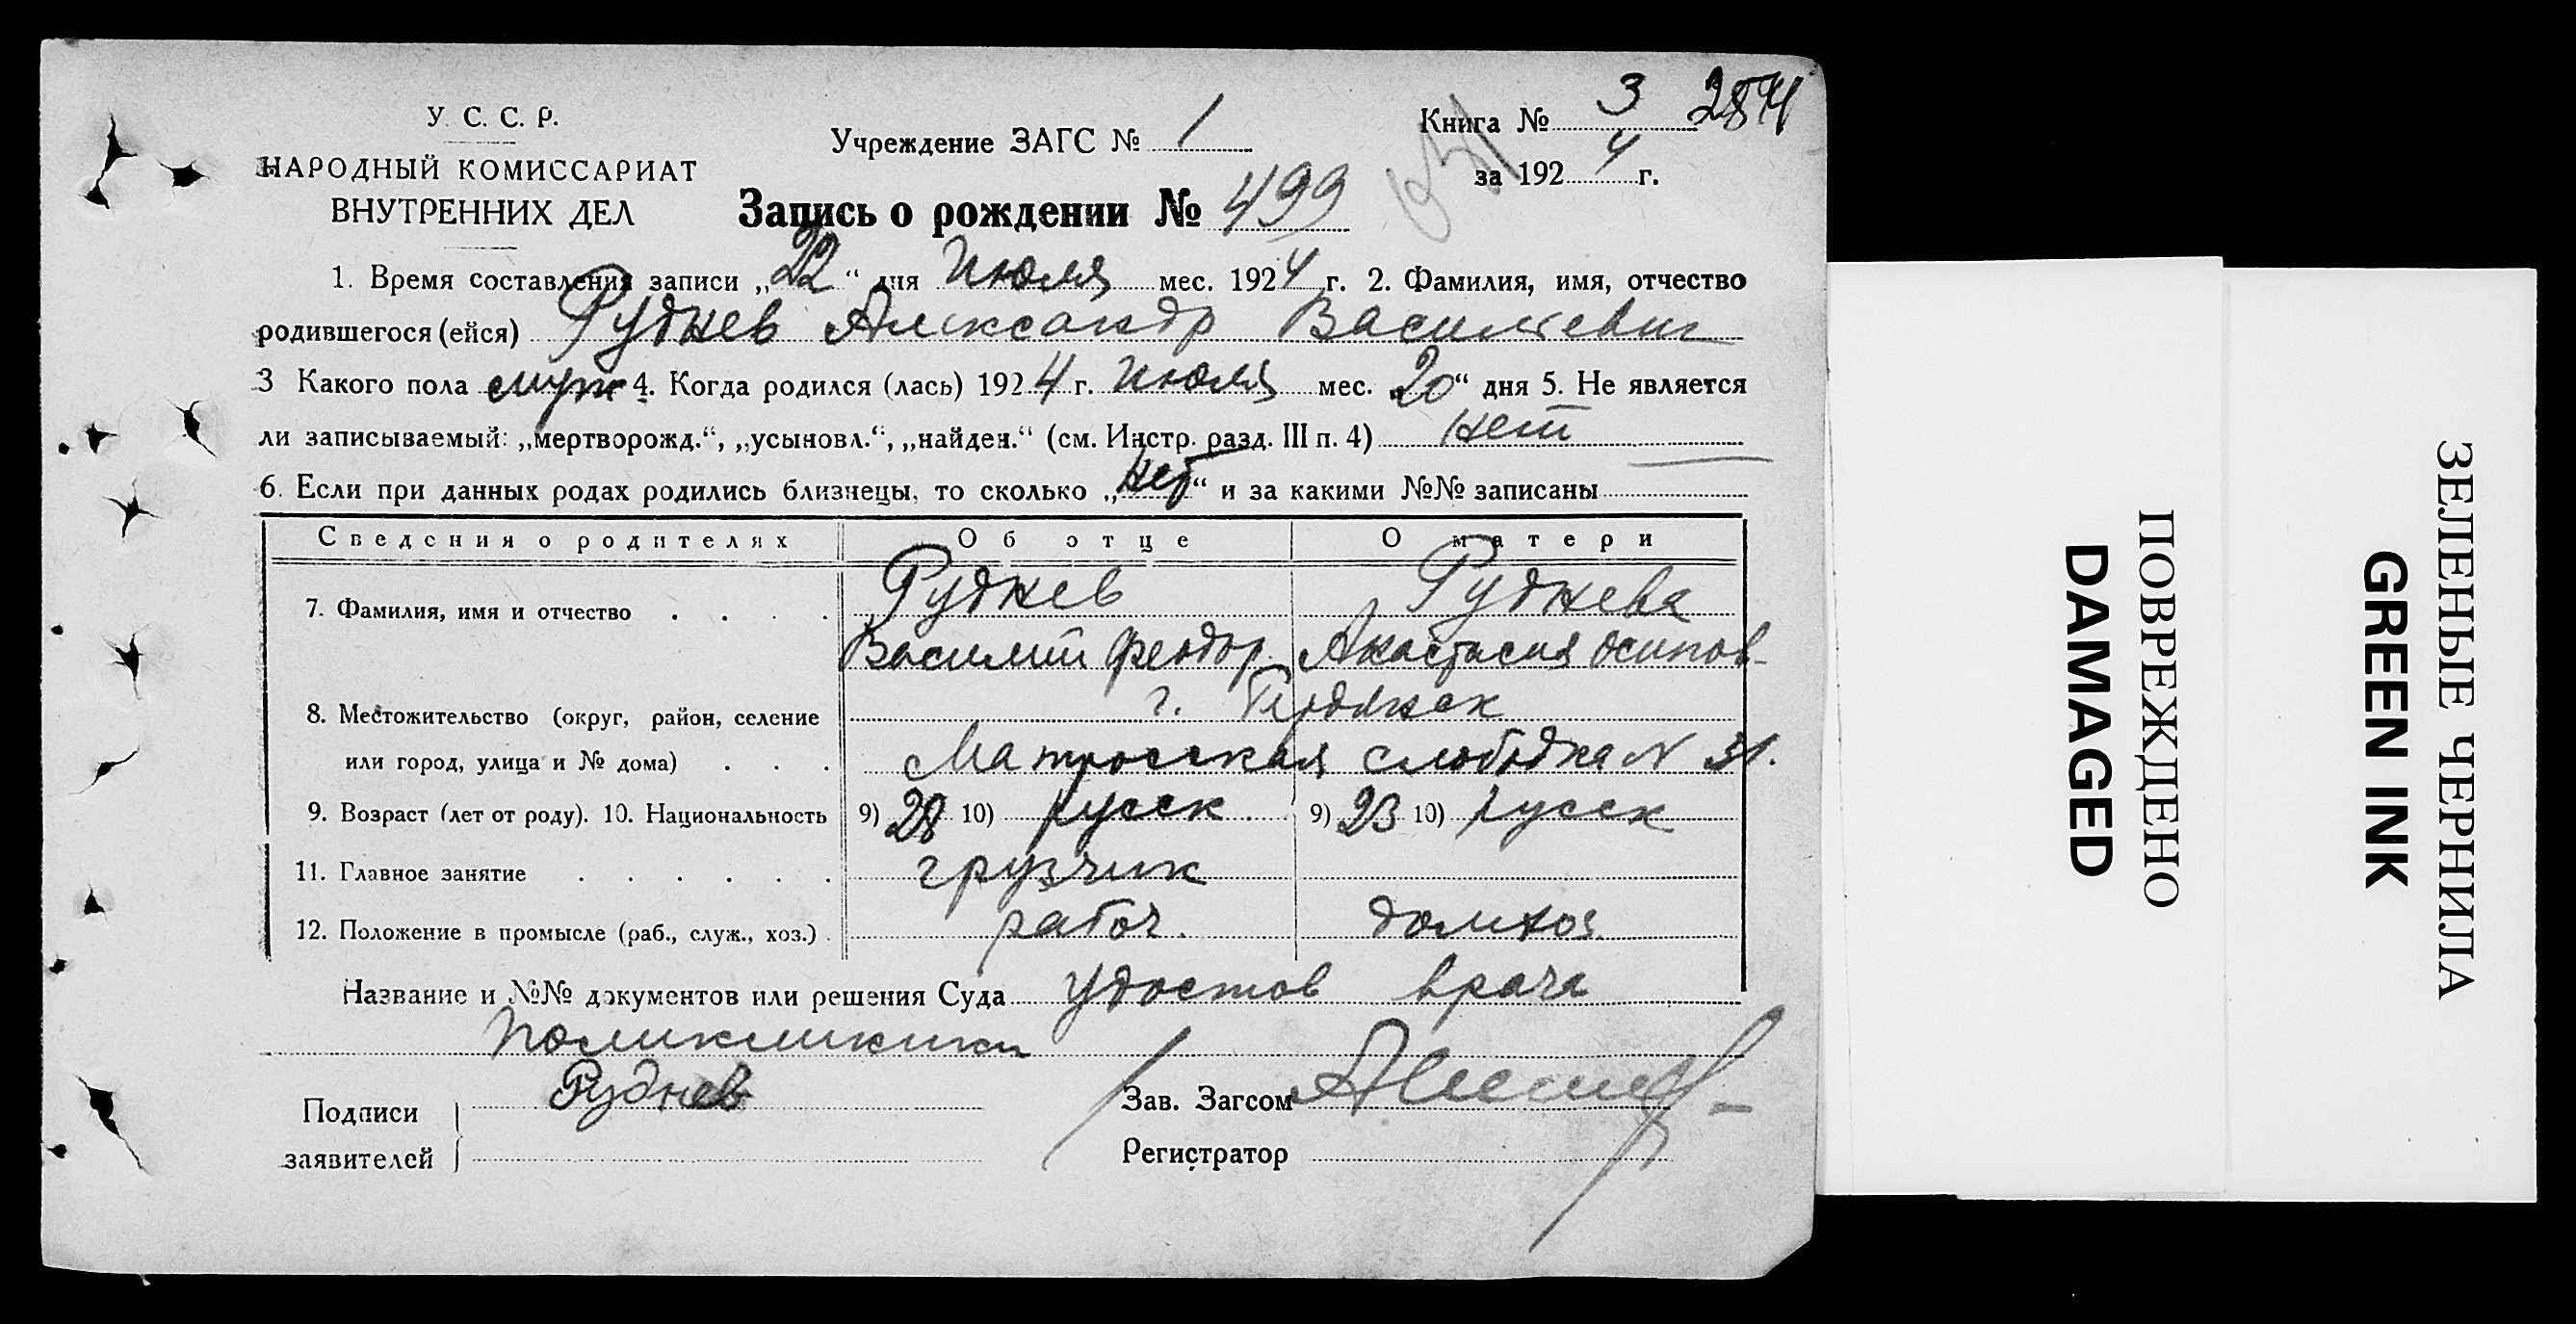 У. С. С. Р.
НАРОДНЫЙ КОМИССАРИАТ
ВНУТРЕННИХ ДЕЛ
Учреждение ЗАГС № 1
Книга № 3 284
за 1924 г.
Запись о рождении № 499
1. Время составления записи „22“ дня Июля мес. 1924 г. 2. Фамилия, имя, отчество
родившегося (ейся) Руднев Александр Васильевич
3 Какого пола муж 4. Когда родился (лась) 1924 г. Июля мес. 20“ дня 5. Не является
ли записываемый: „мертворожд.“, „усыновл.“, „найден.“ (см. Инстр. разд. III п. 4) Нет
6. Если при данных родах родились близнецы, то сколько „Нет“ и за какими №№ записаны
Сведения о родителях Об отце О матери
7. Фамилия, имя и отчество Руднев Руднева
Василий Феодор. Анастасия Осипов-
8. Местожительство (округ, район, селение г. Бердянск
или город, улица и № дома) Матросская слободка N 31.
9. Возраст (лет от роду). 10. Национальность 9) 28 10) русск 9) 23 10) русск
11. Главное занятие грузчик
12. Положение в промысле (раб., служ., хоз.) рабоч. домхоз
Название и №№ документов или решения Суда Удостов врача
поликлиники
Подписи Руднев Зав. Загсом
заявителей Регистратор
ПОВРЕЖДЕНО
DAMAGED
ЗЕЛЕНЫЕ ЧЕРНИЛА
GREEN INK